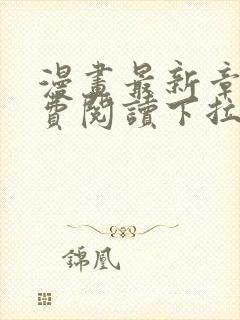 漫畫最新章
費閱讀下拉
錦凰